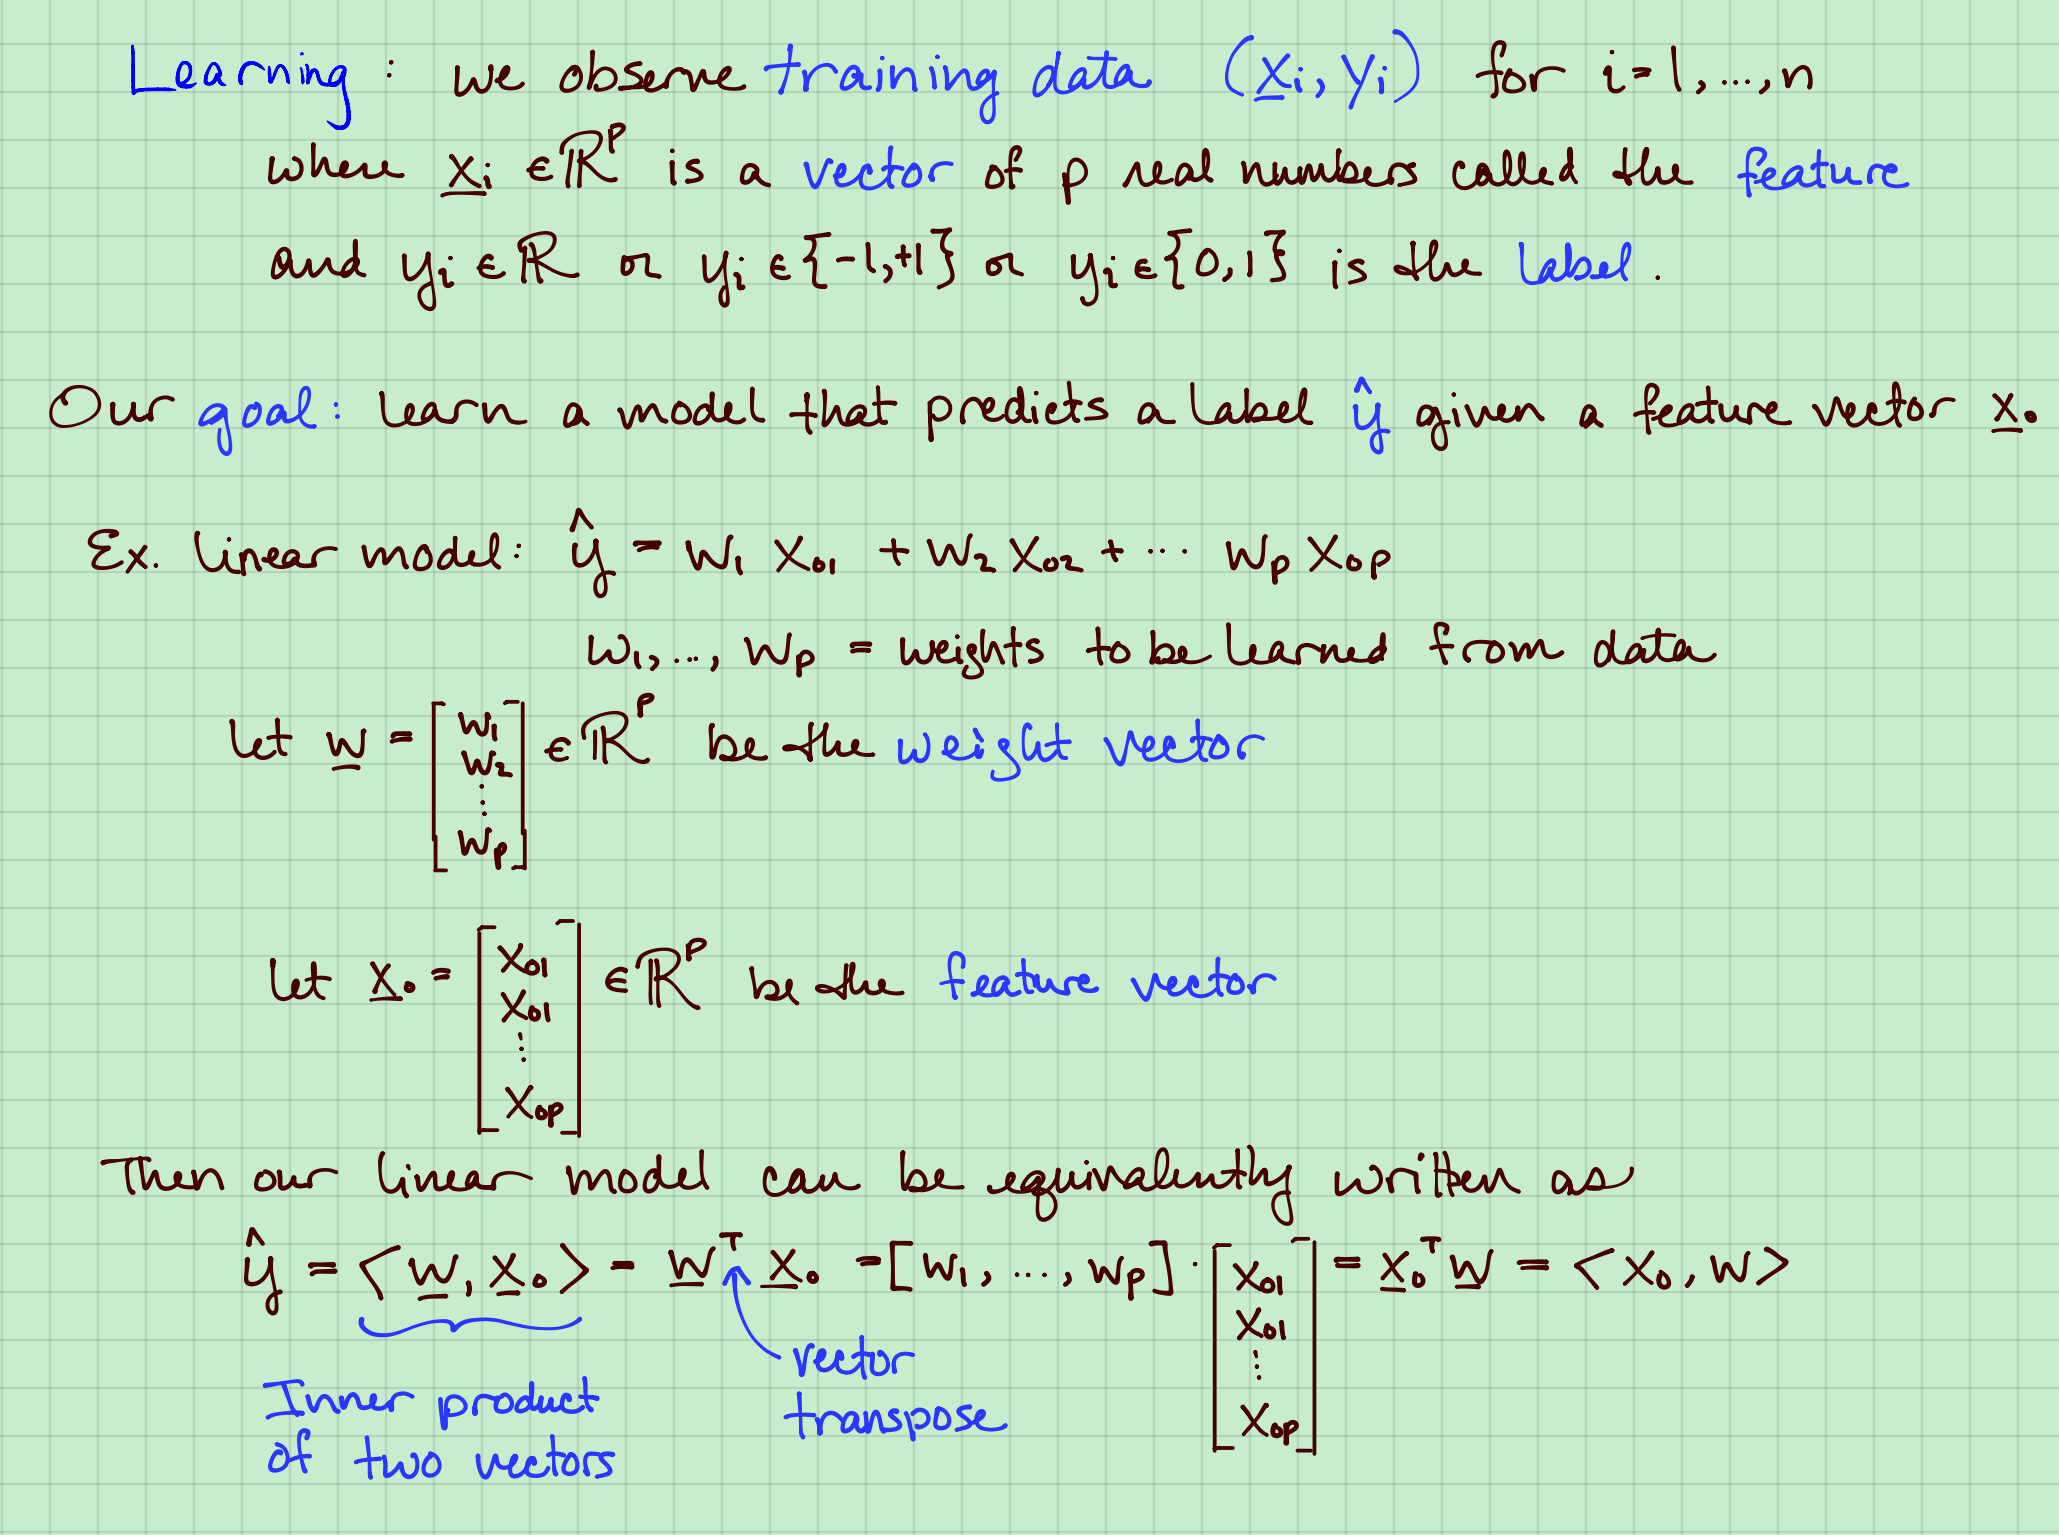 Learning: we observe training data (x̲ᵢ, yᵢ) for i=1,...,n
where x̲ᵢ ∈ ℝᵖ is a vector of p real numbers called the feature
and yᵢ ∈ ℝ or yᵢ ∈ {-1,+1} or yᵢ ∈ {0,1} is the label.
Our goal: learn a model that predicts a label ŷ given a feature vector x̲₀
Ex. linear model: ŷ = w₁ x₀₁ + w₂ x₀₂ + ... wₚ x₀ₚ
w₁,..., wₚ = weights to be learned from data
Let w̲ = [w₁ w₂ ⋮ wₚ] ∈ ℝᵖ be the weight vector
Let x̲₀ = [x₀₁ x₀₁ ⋮ x₀ₚ] ∈ ℝᵖ be the feature vector
Then our linear model can be equivalently written as
ŷ = <w̲, x̲₀> = w̲ᵀ x̲₀ = [w₁, ..., wₚ] · [x₀₁ x₀₁ ⋮ x₀ₚ] = x̲₀ᵀ w̲ = <x₀, w>
Inner product
of two vectors
vector
transpose